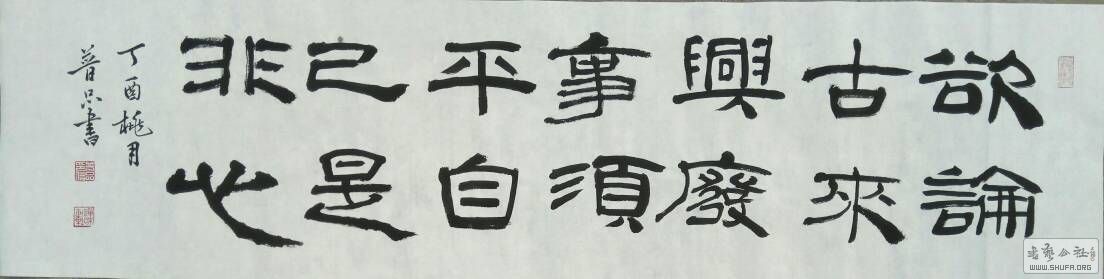 欲論
古來
興廢
事須
平自
己是
非心
丁酉桃月
普書
书艺公社
WWW.SHUFA.ORG